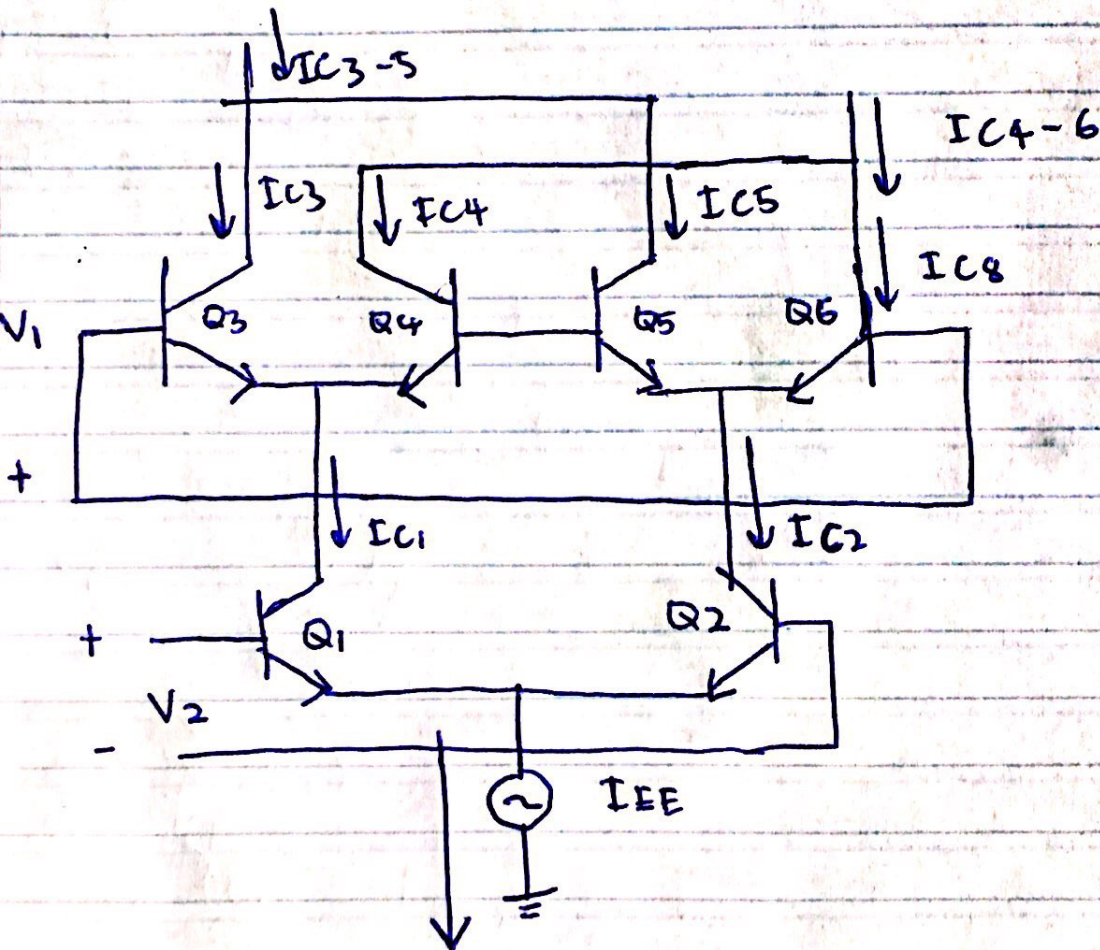 IC3-5
IC4-6
IC3
IC4
IC5
IC8
V1
Q3
Q4
Q5
Q6
+
IC1
IC2
+
Q1
Q2
V2
-
IEE